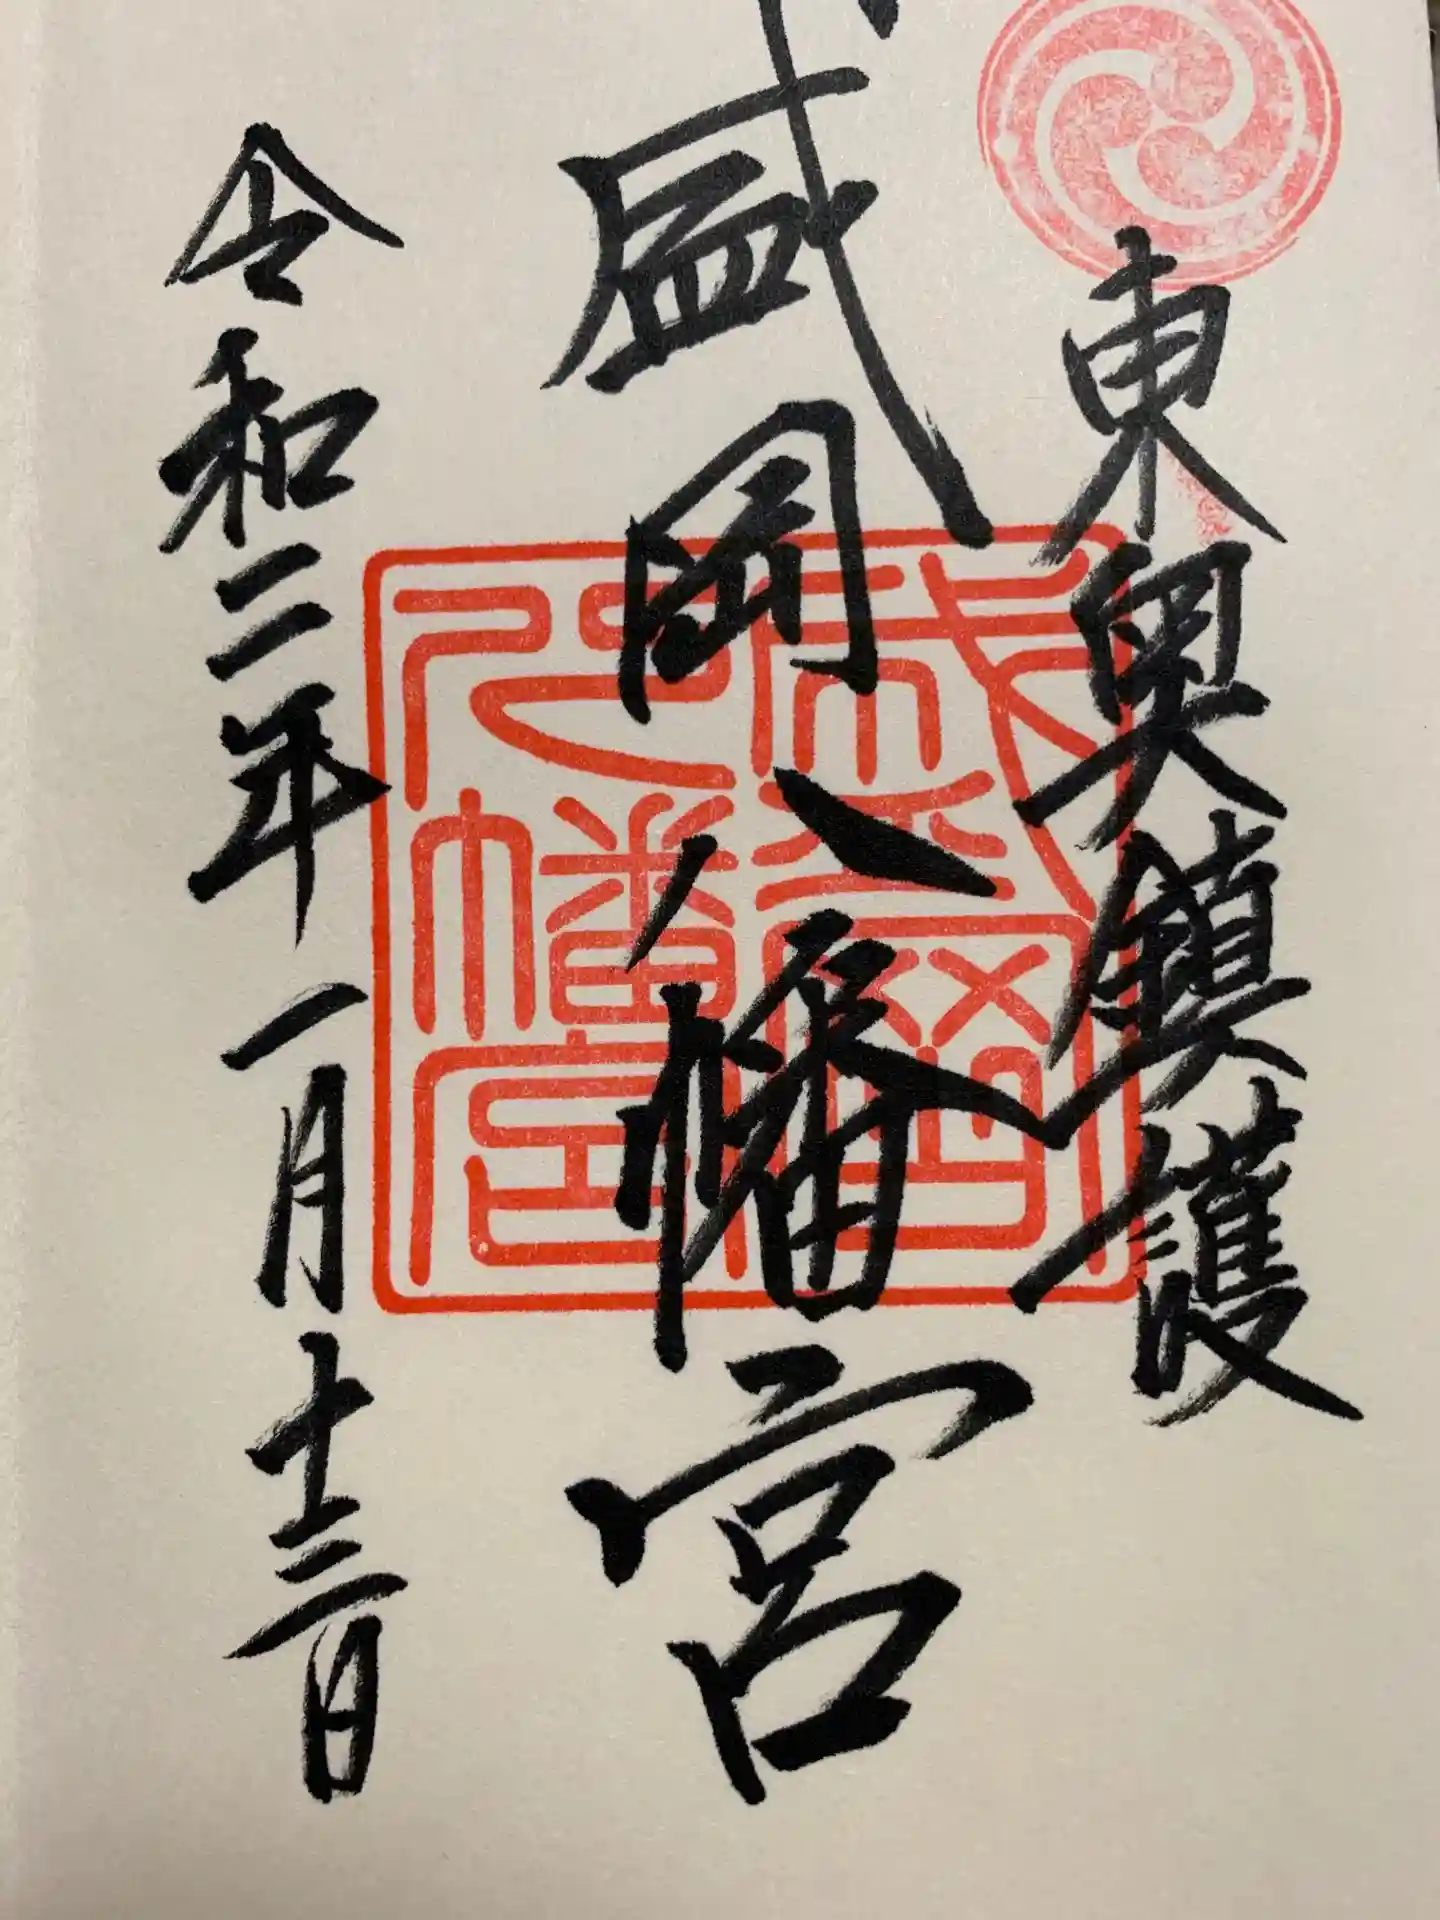 東奥鎮護
盛岡八幡宮
盛岡八幡宮
令和二年一月十三日